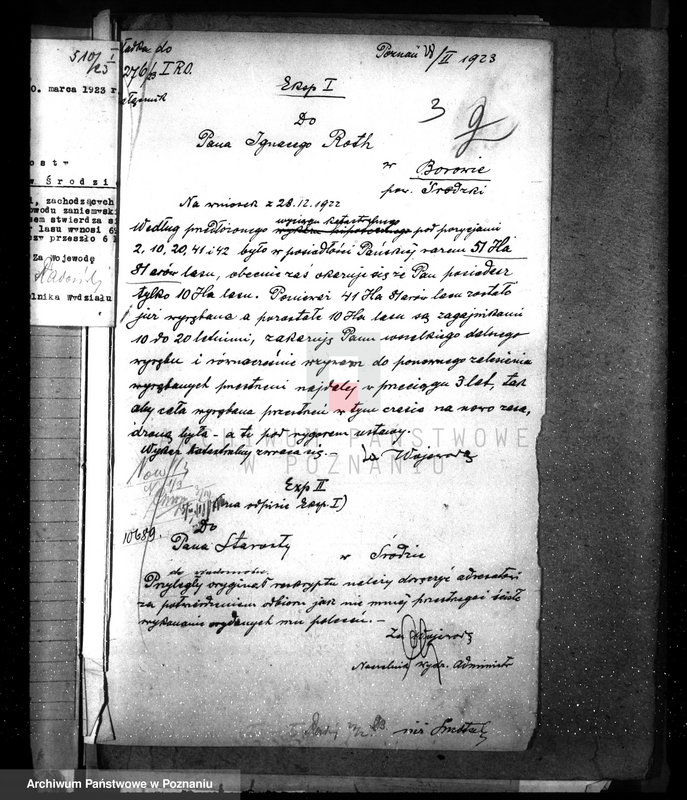 510/23 I
o. marca 1923 r
o s t w
w Ś r o d z i
, zachodzących
owodu zaniemysk
sem stwierdza si
lasu wynosi 6
zy przeszło 6
Za Wojewodę
olnika Wydziału
do
276/23 I RO.
Poznań /II 1923
Eksp I
3
Do
Pana Ignacego Roth
w Borowie
pow. Średzki
Na wniosek z 28.12.1922
wyciągu katastralnego
Według przedłożonego wykazu hipotecznego pod pozycjami
2, 10, 20, 41 i 42 było w posiadłości Pańskiej razem 51 Ha
81 arów lasu, obecnie zaś okazuje się że Pan posiadasz
tylko 10 Ha lasu. Ponieważ 41 Ha 81 arów lasu zostało
już wyrąbane a pozostałe 10 Ha lasu są zagajnikami
10 do 20 letnimi, zakazuję Panu wszelkiego dalszego
wyrębu i równocześnie wzywam do ponownego zalesienia
wyrąbanych przestrzeni najdalej w przeciągu 3 lat, tak
aby cała wyrąbana przestrzeń w tym czasie na nowo zasa,
dzoną była - a to pod rygorem ustawy.
Wykaz katastralny zwraca się.
Za Wojewodę
Exp II
(na odpisie Eksp. I)
10689.
Do
Pana Starosty
w Środzie
do wiadomości.
Przyległy oryginał reskryptu należy doręczyć adresatowi
za potwierdzeniem odbioru jak nie mniej przestrzegać ściśle
wykonanie wydanych mu poleceń. -
Za Wojewodę
Naczelnik wydz. Administr
ARCHIWUM PAŃSTWOWE
W POZNANIU
Archiwum Państwowe w Poznaniu